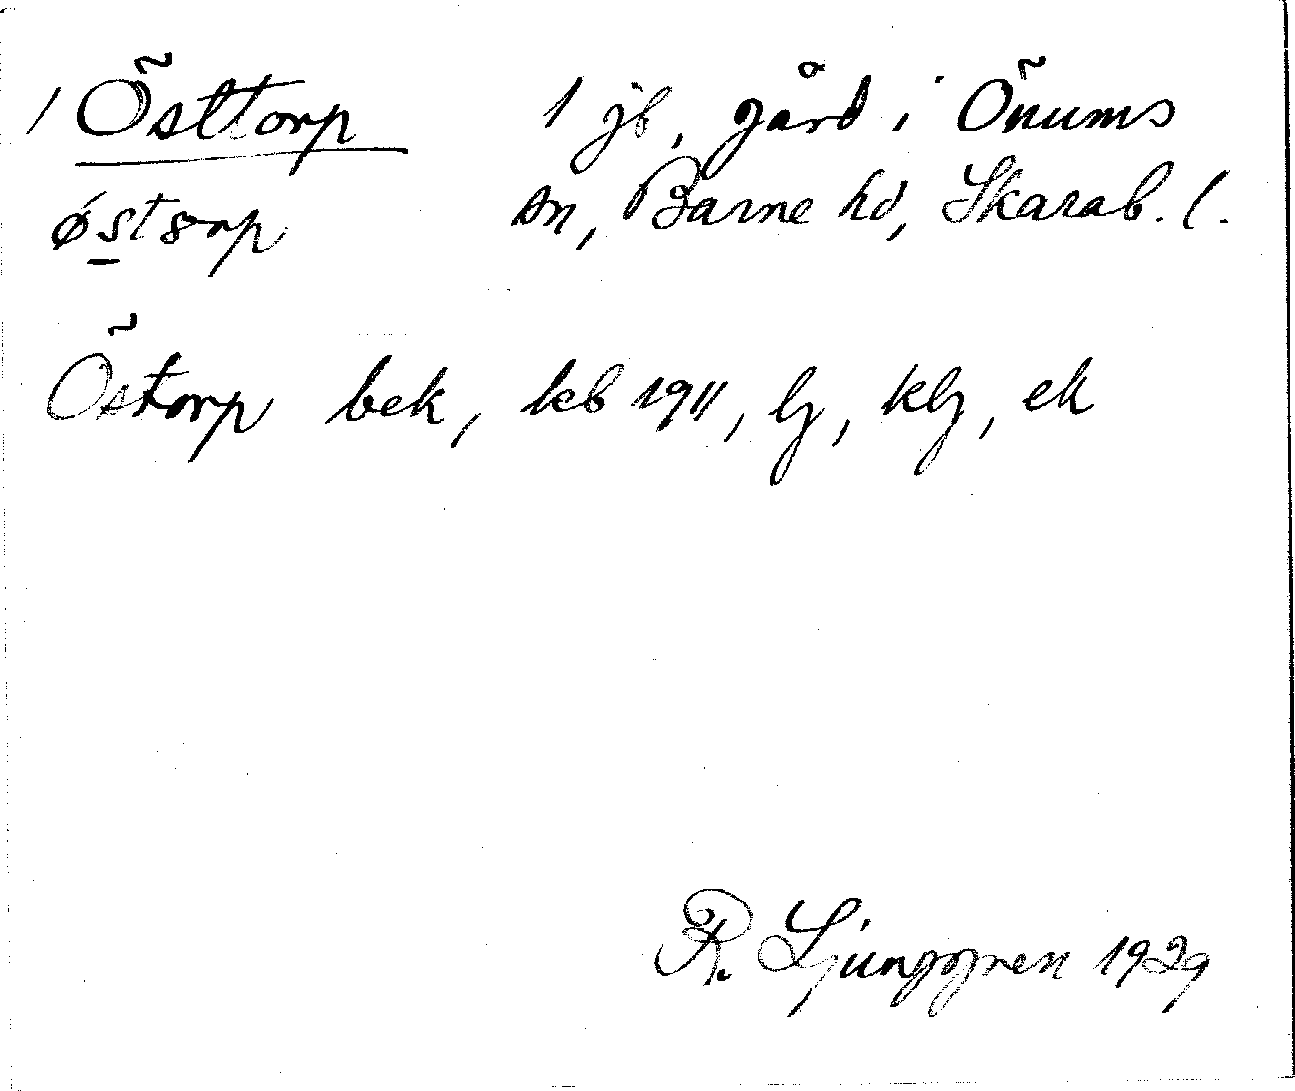 1 Östtorp 1 jb, gård i Önums
østørp sn, Barne hd, Skarab. l.
Östorp bek, kb 1911, lj, klj, ek
R. Ljunggren 1929